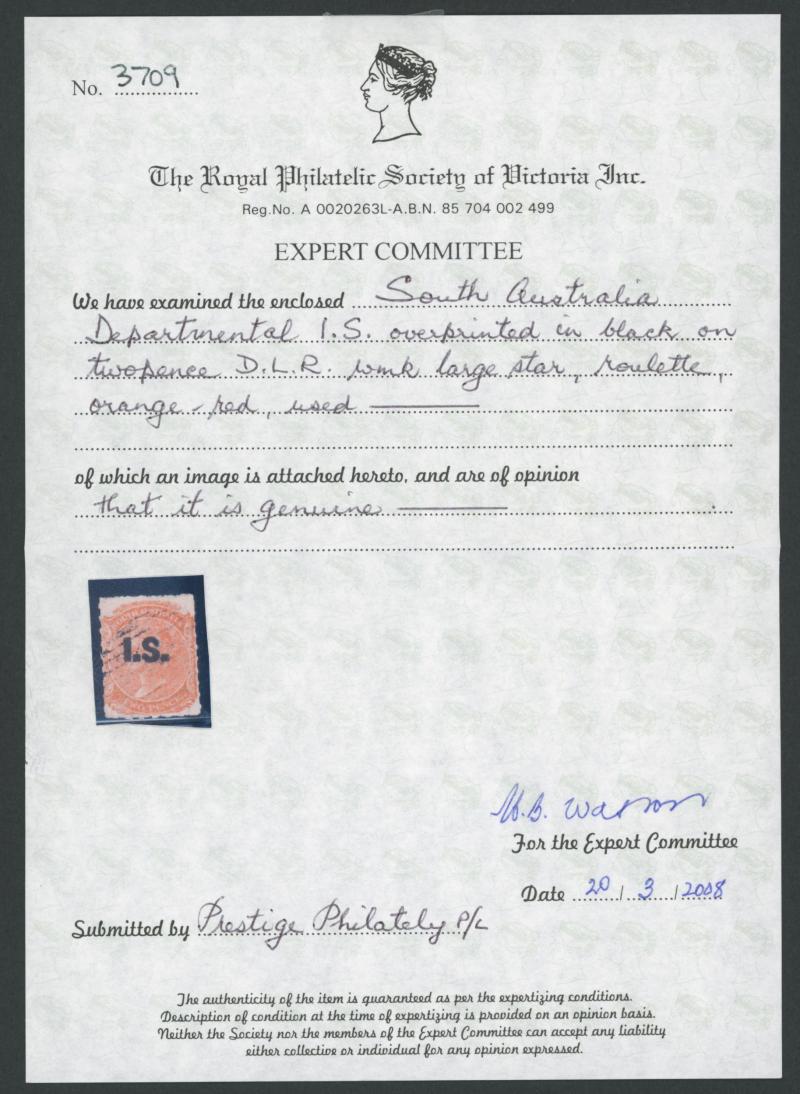 No. 3709
The Royal Philatelic Society of Victoria Inc.
Reg.No. A 0020263L-A.B.N. 85 704 002 499
EXPERT COMMITTEE
We have examined the enclosed South Australia
Departmental I.S. overprinted in black on
twopence D.L.R. wmk large star, roulette,
orange-red, used
of which an image is attached hereto, and are of opinion
that it is genuine
I.S.
For the Expert Committee
Date 20/3/2008
Submitted by Prestige Philately P/L
The authenticity of the item is guaranteed as per the expertizing conditions.
Description of condition at the time of expertizing is provided on an opinion basis.
Neither the Society nor the members of the Expert Committee can accept any liability
either collective or individual for any opinion expressed.